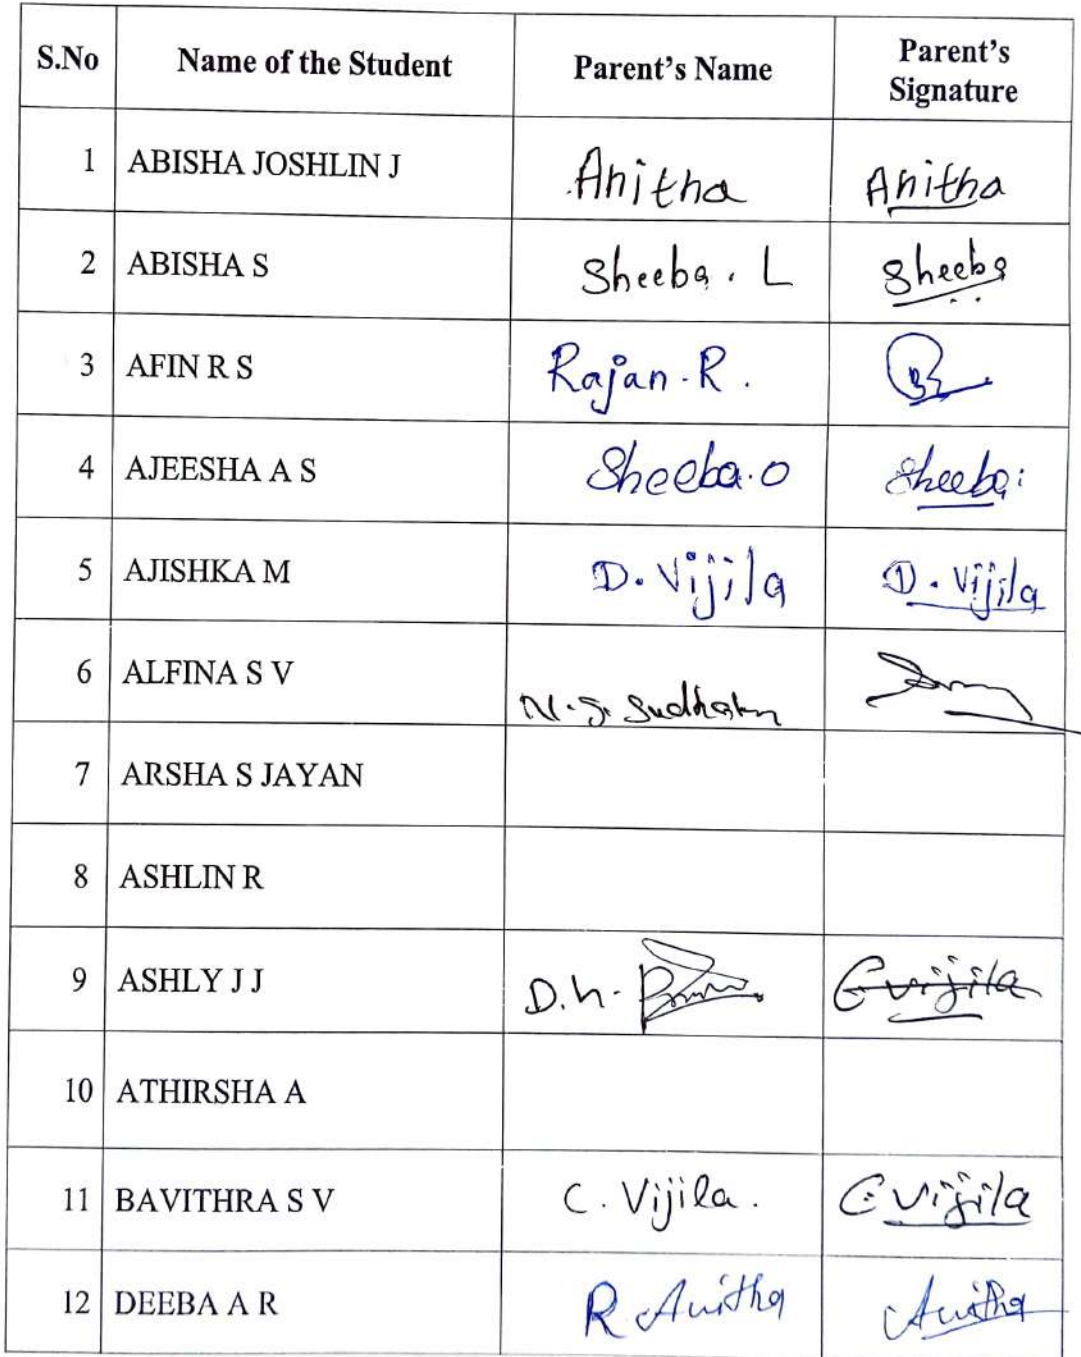 S.No Name of the Student Parent's Name Parent's Signature
1 ABISHA JOSHLIN J Anitha Anitha
2 ABISHA S Sheeba. L Sheeba
3 AFIN R S Rajan. R.
4 AJEESHA A S Sheeba. O Sheeba
5 AJISHKA M D. Vijila D. Vijila
6 ALFINA S V N. S.
7 ARSHA S JAYAN
8 ASHLIN R
9 ASHLY J J D. h. C vijila
10 ATHIRSHA A
11 BAVITHRA S V C. Vijila. C vijila
12 DEEBA A R R. Anitha Anitha